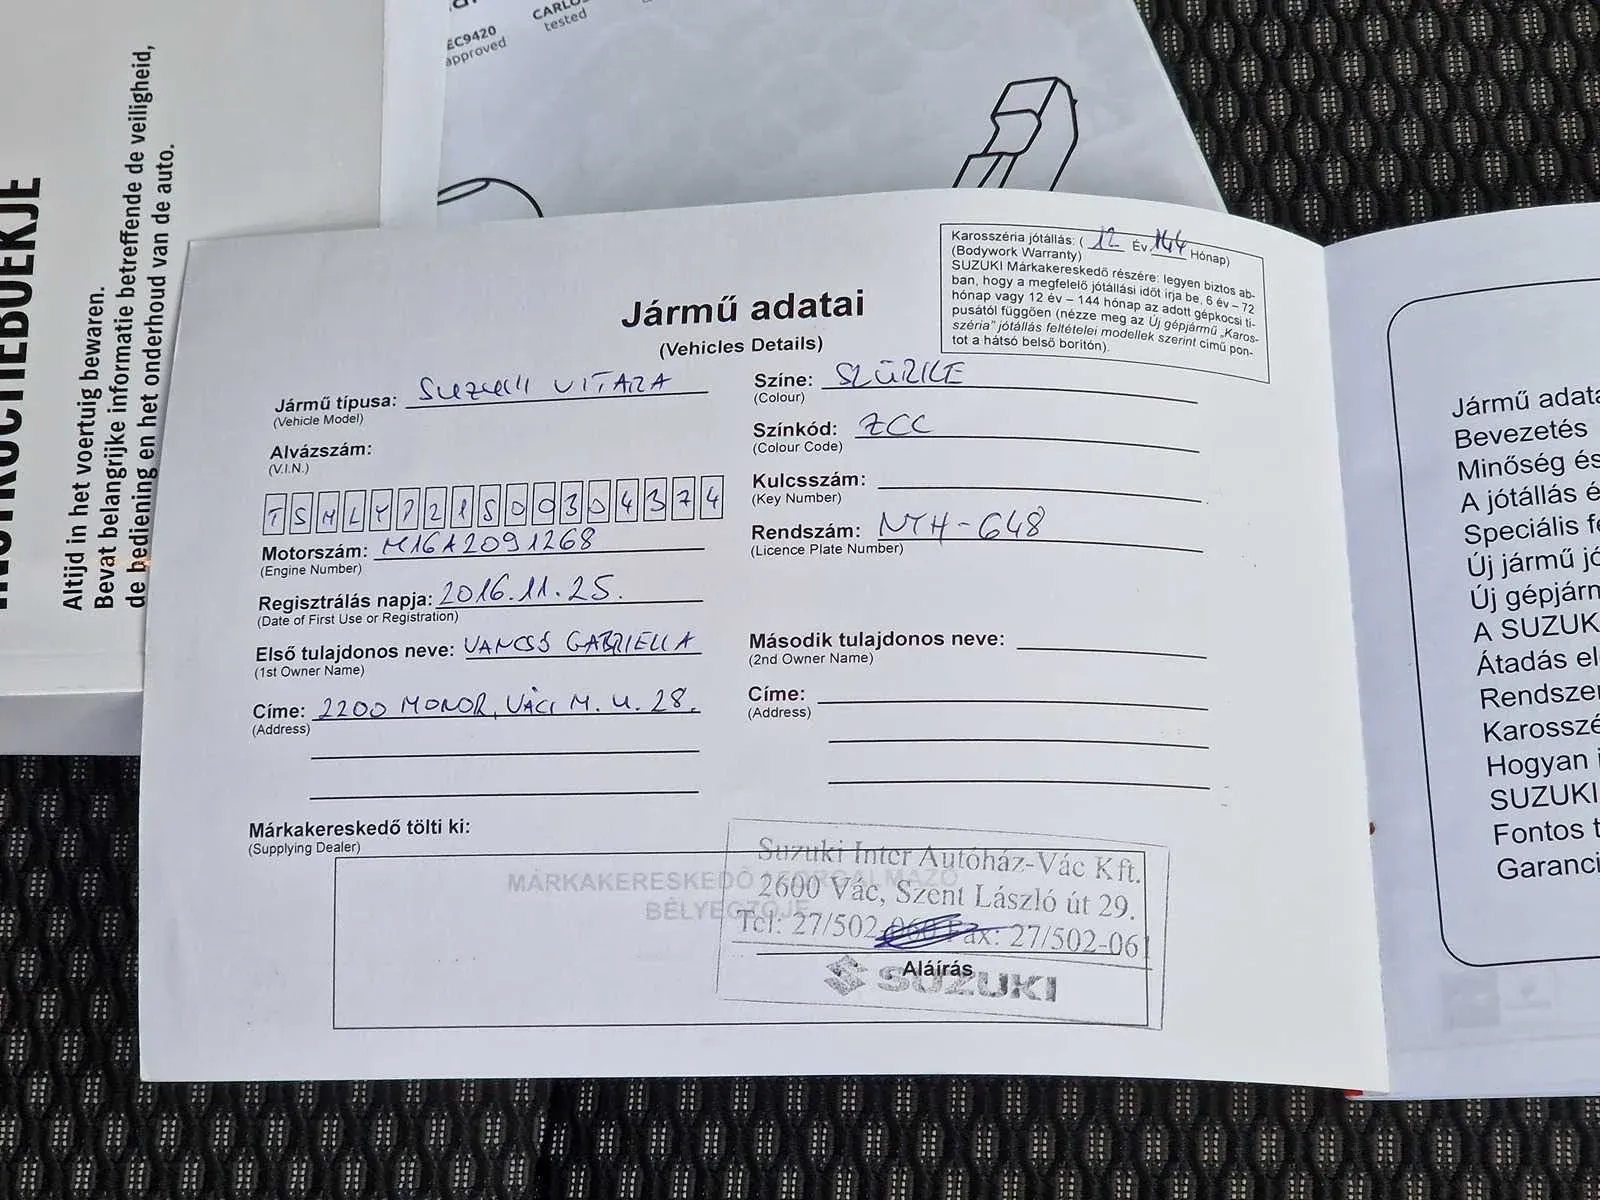 INSTRUCTIEBOEKJE
Altijd in het voertuig bewaren.
Bevat belangrijke informatie betreffende de veiligheid,
de bediening en het onderhoud van de auto.
EC9420
approved
tested
Karosszéria jótállás: ( 12 Év 144 Hónap)
(Bodywork Warranty)
SUZUKI Márkakereskedő részére: legyen biztos ab-
ban, hogy a megfelelő jótállási időt írja be, 6 év – 72
hónap vagy 12 év – 144 hónap az adott gépkocsi tí-
pusától függően (nézze meg az Új gépjármű „Karos-
széria" jótállás feltételei modellek szerint című pon-
tot a hátsó belső borítón).
Jármű adatai
(Vehicles Details)
Jármű típusa: SUZUKI VITARA
(Vehicle Model)
Alvázszám:
(V.I.N.)
TSMLY 21S00304374
Motorszám: M16A2091268
(Engine Number)
Regisztrálás napja: 2016.11.25.
(Date of First Use or Registration)
Első tulajdonos neve: VANCSÓ GABRIELLA
(1st Owner Name)
Címe: 2200 MONOR, VÁCI M. U. 28.
(Address)
Színe: SZÜRKE
(Colour)
Színkód: ZCC
(Colour Code)
Kulcsszám:
(Key Number)
Rendszám: NTH-648
(Licence Plate Number)
Második tulajdonos neve:
(2nd Owner Name)
Címe:
(Address)
Márkakereskedő tölti ki:
(Supplying Dealer)
MÁRKAKERESKEDŐ
BÉLYEGZŐJE
Suzuki Inter Autóház-Vác Kft.
2600 Vác, Szent László út 29.
Tel: 27/502-060 Fax: 27/502-061
Aláírás
SUZUKI
Jármű adata
Bevezetés
Minőség és
A jótállás é
Speciális fe
Új jármű jó
Új gépjárm
A SUZUK
Átadás el
Rendszer
Karosszé
Hogyan
SUZUKI
Fontos t
Garanci